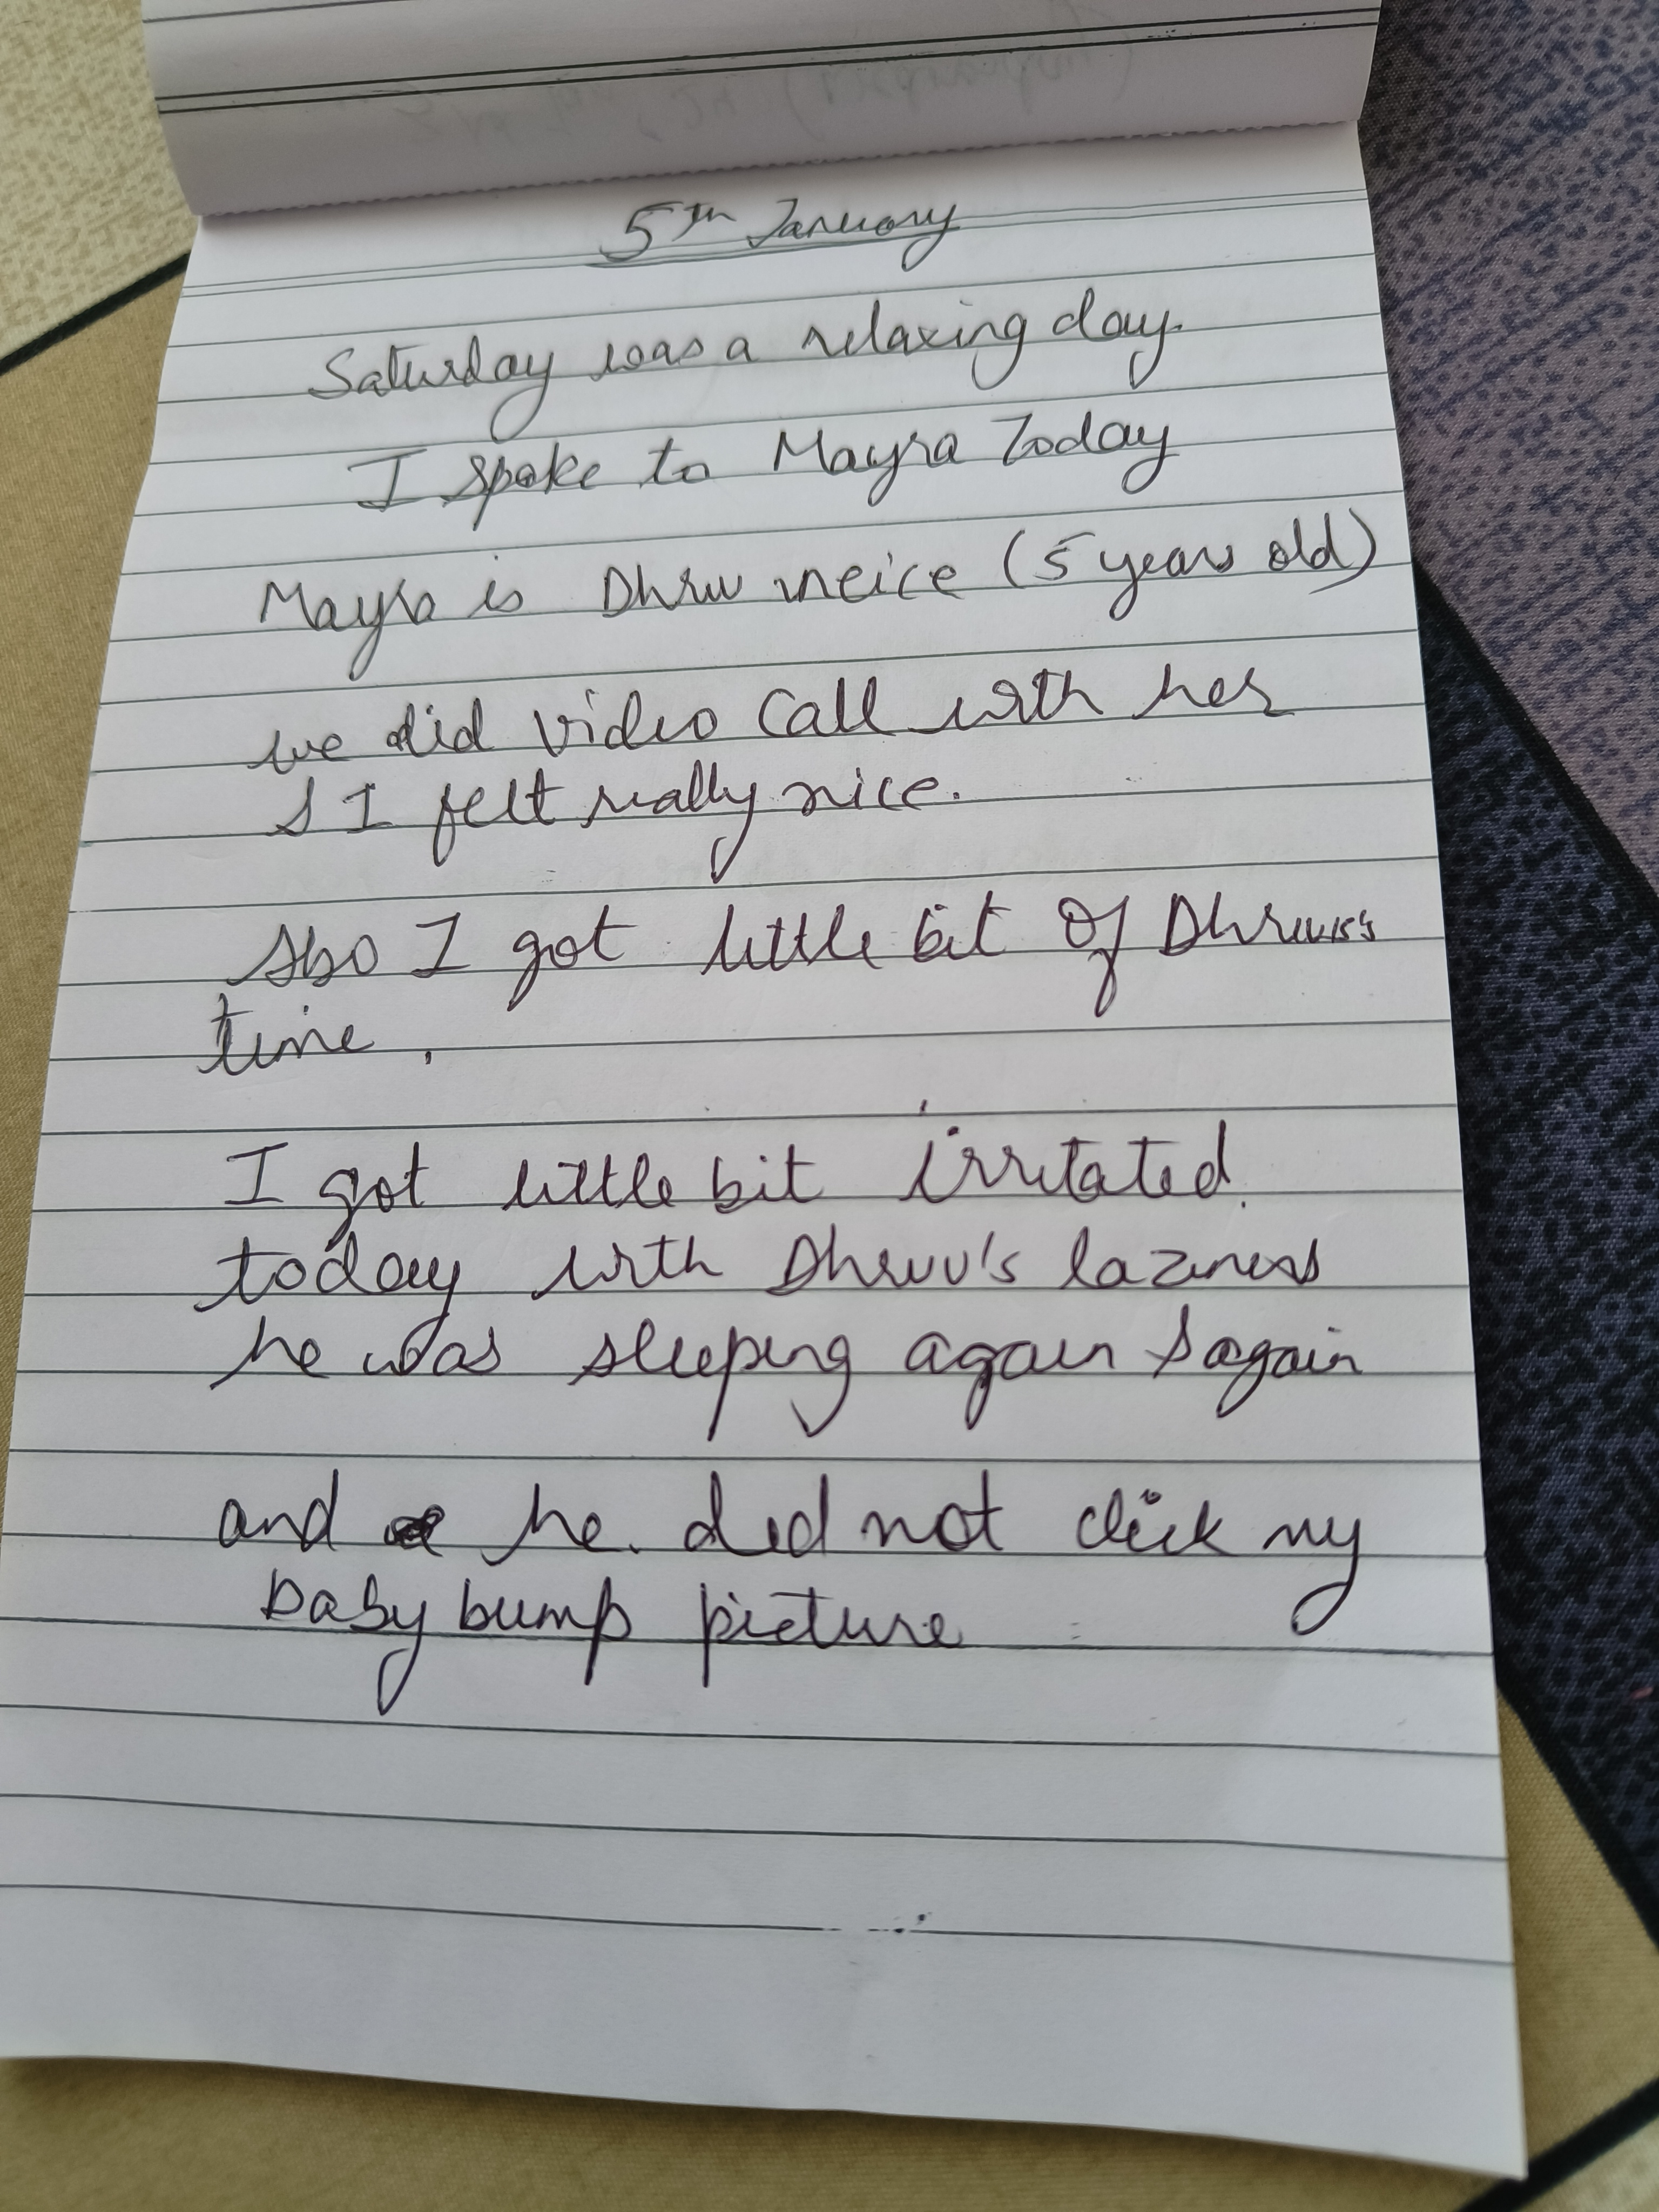 5th January
Saturday was a relaxing day.
I spoke to Mayra Today
Mayra is Dhruv neice (5 years old)
we did video call with her
& I felt really nice.
Also I got little bit of Dhruv's
time.
I got little bit irritated.
today with Dhruv's laziness
he was sleeping again & again
and he did not click my
baby bump picture